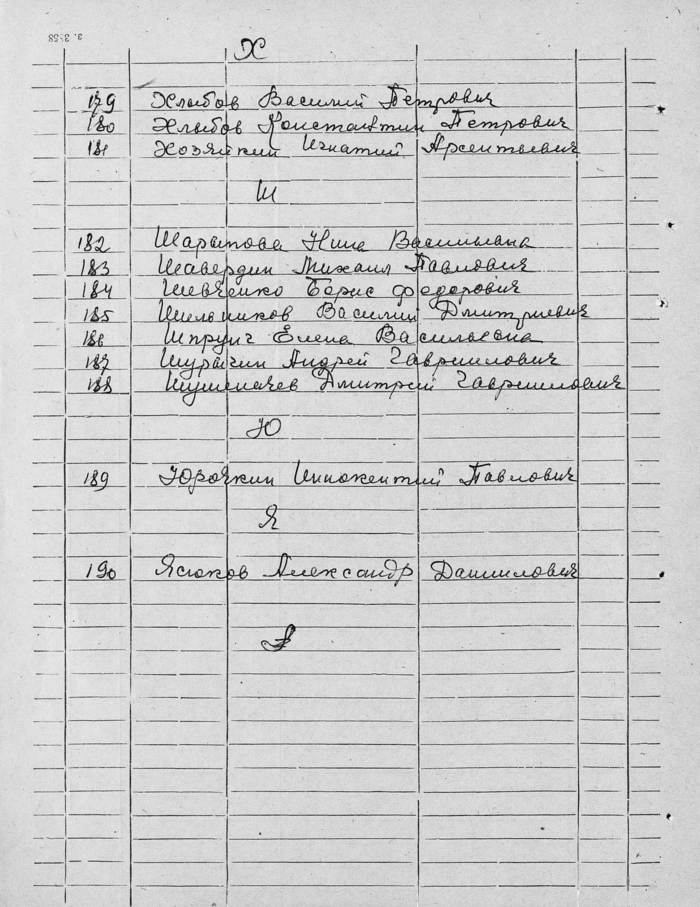 Х
179 Хлыбов Василий Петрович
180 Хлыбов Константин Петрович
181 Хозяйкин Игнатий Арсентьевич
Ш
182 Шарапова Нина Васильевна
183 Шавердин Михаил Павлович
184 Шевченко Борис Федорович
185 Шильников Василий Дмитриевич
186 Шпрунг Елена Васильевна
187 Шурыгин Андрей Гаврилович
188 Дмитрий Гаврилович
Ю
189 Юрочкин Иннокентий Павлович
Я
190 Ясюков Александр Данилович